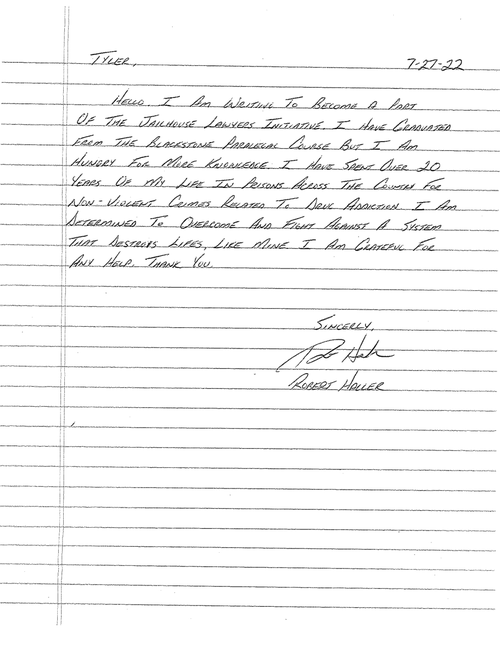 TYLER, 7-27-22
HELLO. I AM WRITING TO BECOME A PART
OF THE JAILHOUSE LAWYERS INITIATIVE. I HAVE GRADUATED
FROM THE BLACKSTONE PARALEGAL COURSE BUT I AM
HUNGRY FOR MORE KNOWLEDGE. I HAVE SPENT OVER 20
YEARS OF MY LIFE IN PRISONS ACROSS THE COUNTRY FOR
NON-VIOLENT CRIMES RELATED TO DRUG ADDICTION. I AM
DETERMINED TO OVERCOME AND FIGHT AGAINST A SYSTEM
THAT DESTROYS LIFES, LIKE MINE. I AM GRATEFUL FOR
ANY HELP. THANK YOU.
SINCERLY,
ROBERT HALLER